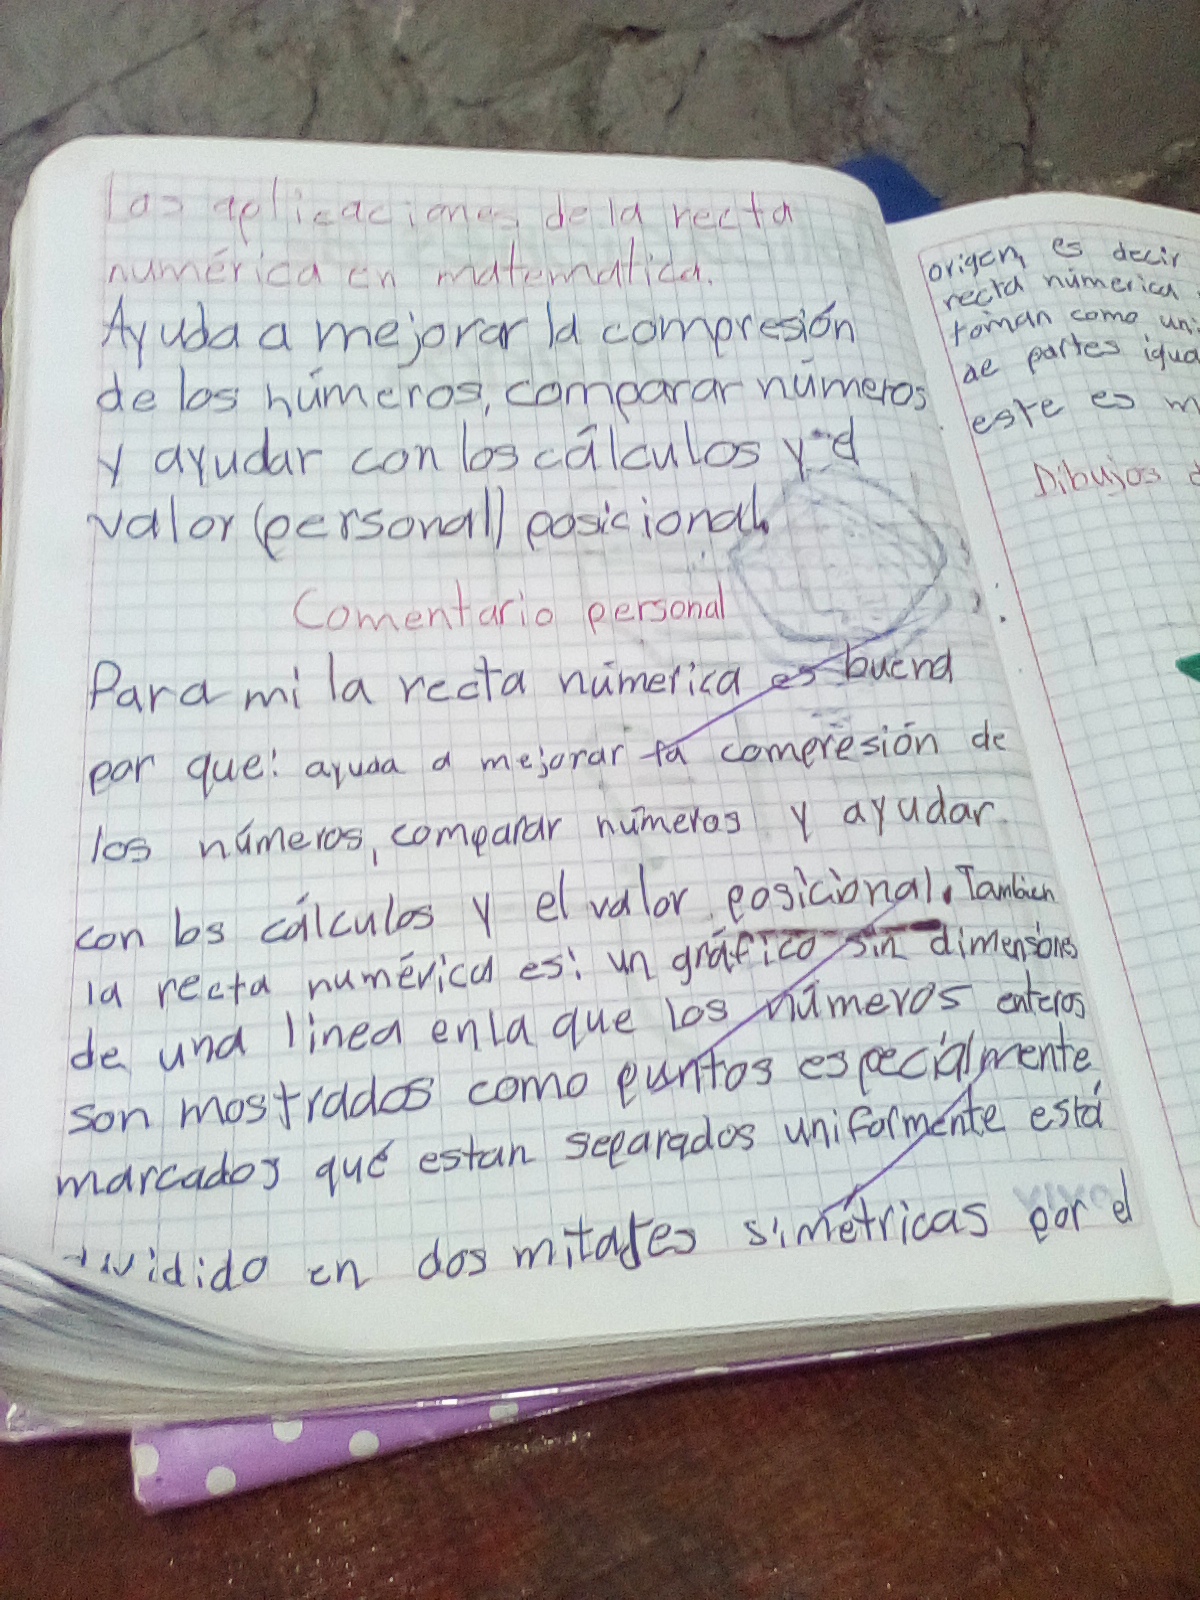 Las aplicaciones de la recta
numérica en matematica.
Ayuda a mejorar la compresión
de los números, comparar números
y ayudar con los cálculos y el
valor (personal) posicional.
Comentario personal
Para mi la recta númerica es buena
por que: ayuda a mejorar la compresión de
los números, comparar números y ayudar
con los cálculos y el valor posicional. Tambien
la recta numérica es: un gráfico sin dimensiones
de una linea en la que los números enteros
son mostrados como puntos especialmente
marcados qué estan separados uniformente está
dividido en dos mitades simétricas por el
origen, es decir
recta númerica
toman como uni
de partes igua
este es m
Dibujos d